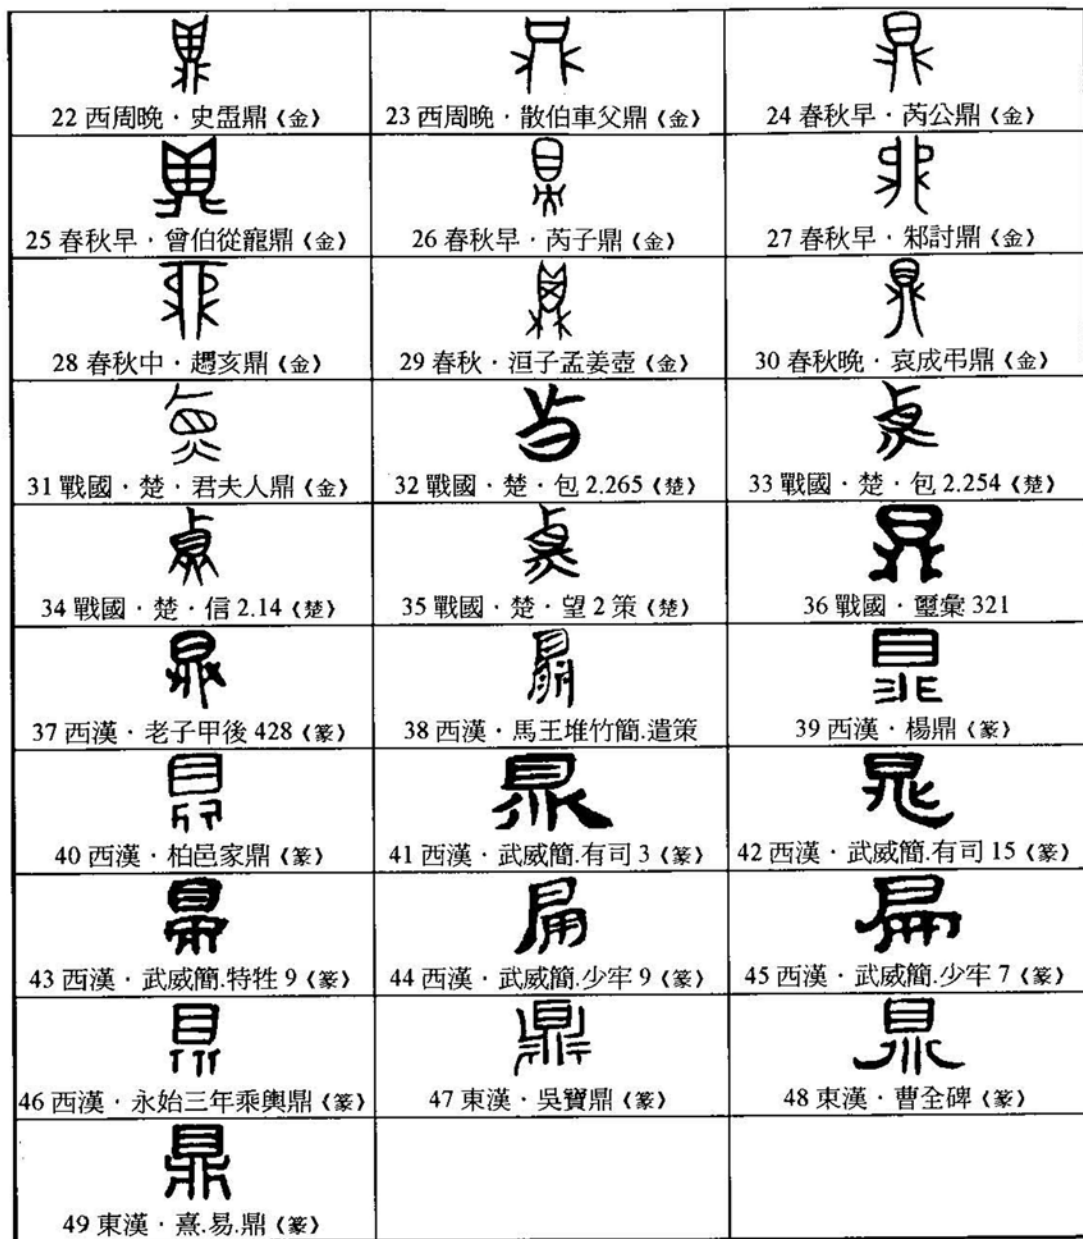 22 西周晚·史盄鼎《金》
23 西周晚·散伯車父鼎《金》
24 春秋早·芮公鼎《金》
25 春秋早·曾伯從寵鼎《金》
26 春秋早·芮子鼎《金》
27 春秋早·邾討鼎《金》
28 春秋中·趞亥鼎《金》
29 春秋·洹子孟姜壺《金》
30 春秋晚·哀成弔鼎《金》
31 戰國·楚·君夫人鼎《金》
32 戰國·楚·包 2.265《楚》
33 戰國·楚·包 2.254《楚》
34 戰國·楚·信 2.14《楚》
35 戰國·楚·望 2 策《楚》
36 戰國·璽彙 321
37 西漢·老子甲後 428《篆》
38 西漢·馬王堆竹簡.遣策
39 西漢·楊鼎《篆》
40 西漢·柏邑家鼎《篆》
41 西漢·武威簡.有司 3《篆》
42 西漢·武威簡.有司 15《篆》
43 西漢·武威簡.特牲 9《篆》
44 西漢·武威簡.少牢 9《篆》
45 西漢·武威簡.少牢 7《篆》
46 西漢·永始三年乘輿鼎《篆》
47 東漢·吳寶鼎《篆》
48 東漢·曹全碑《篆》
49 東漢·熹.易.鼎《篆》